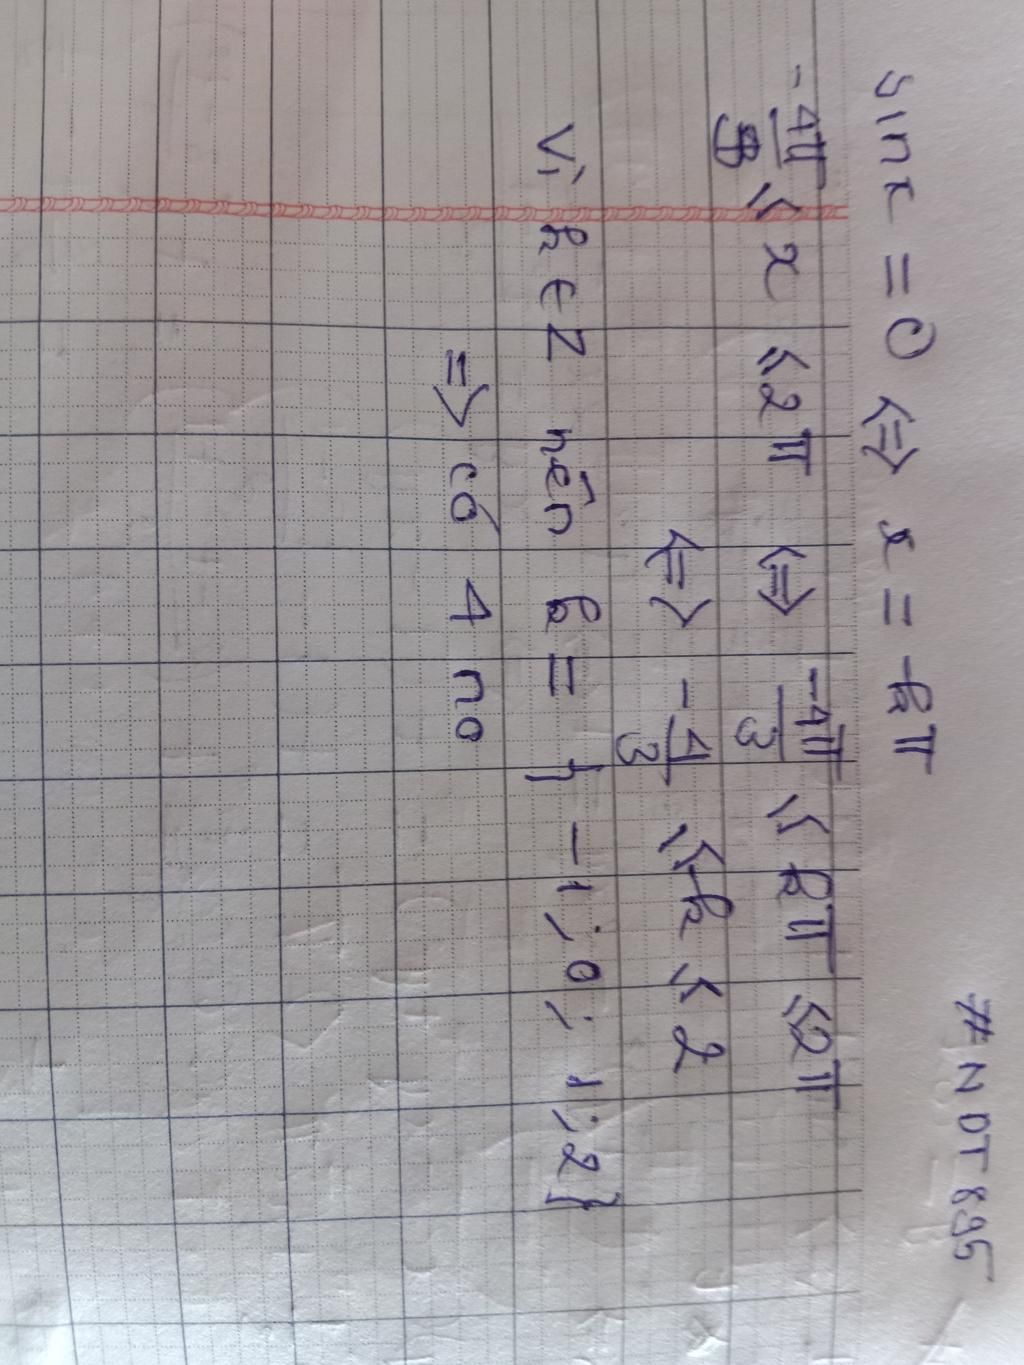 #NDT895
sinx = 0 <=> x = kπ
-4π/3 ≤ x ≤ 2π <=> -4π/3 ≤ kπ ≤ 2π
<=> -4/3 ≤ k ≤ 2
Vì k ∈ Z nên k = { -1; 0; 1; 2}
=> có 4 no